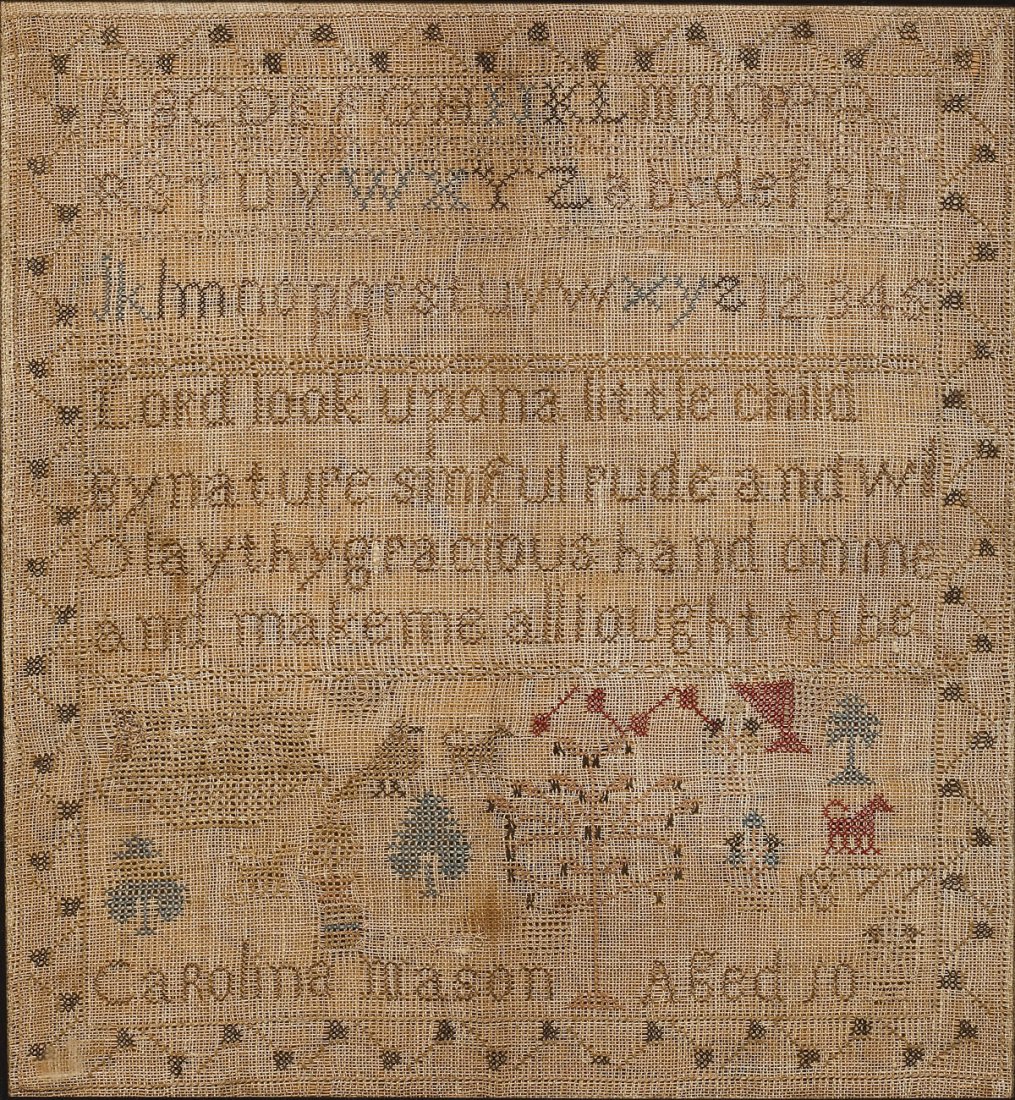 ABCDEFGHIJKLmnOPQ
RSTUVWXYZabcdefghi
Jklmnopqrstuvwxyz12345
Lord look upona little child
Bynature sinfulrude andwil
Olaythygracioushand onme
and makeme alliought tobe
18
Caroline mason Aged 10